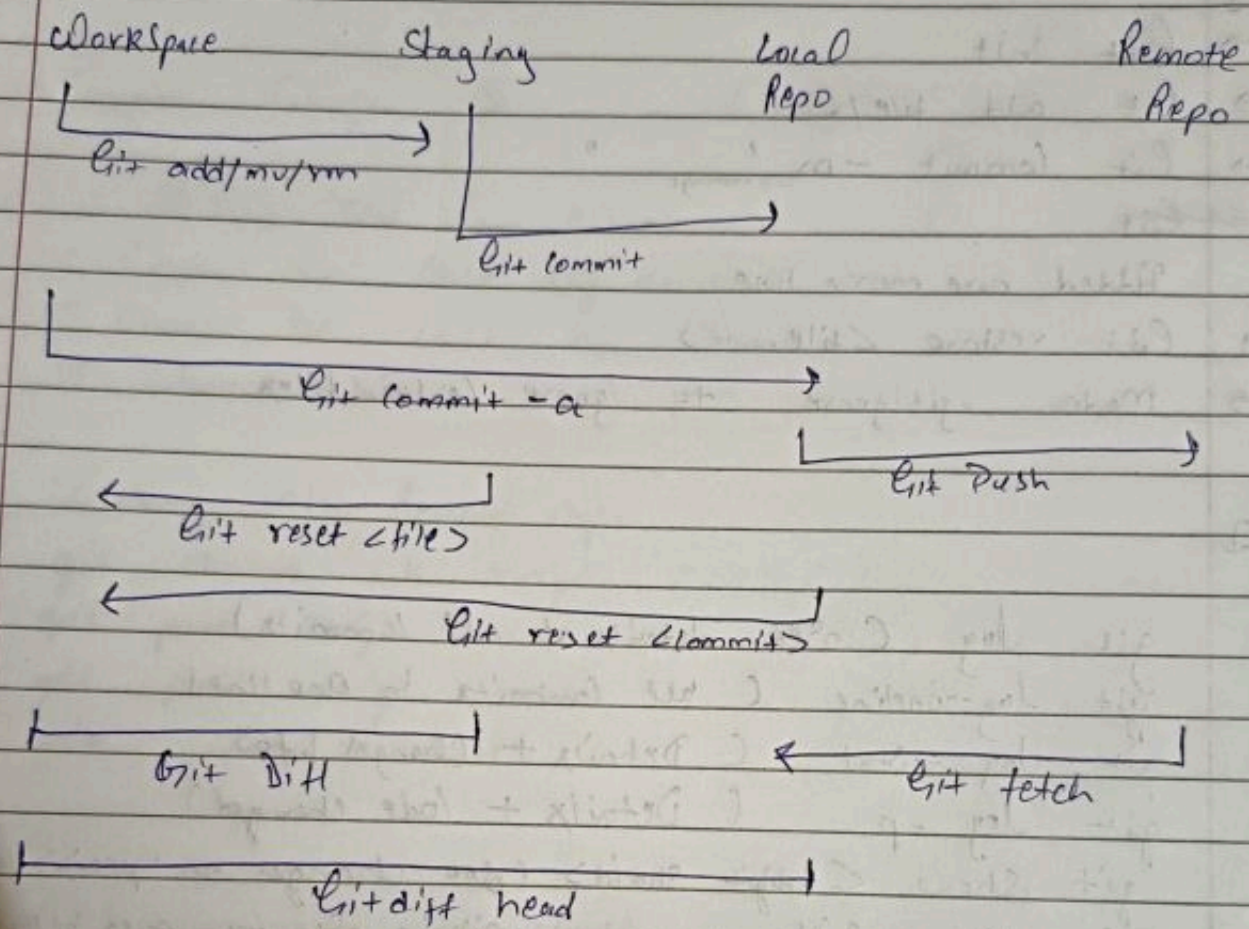 Workspace Staging Local Remote
Repo Repo
Git add/mv/rm
Git Commit
Git Commit -a
Git Push
Git reset <file>
Git reset <Commit>
Git Diff
Git fetch
Git diff head